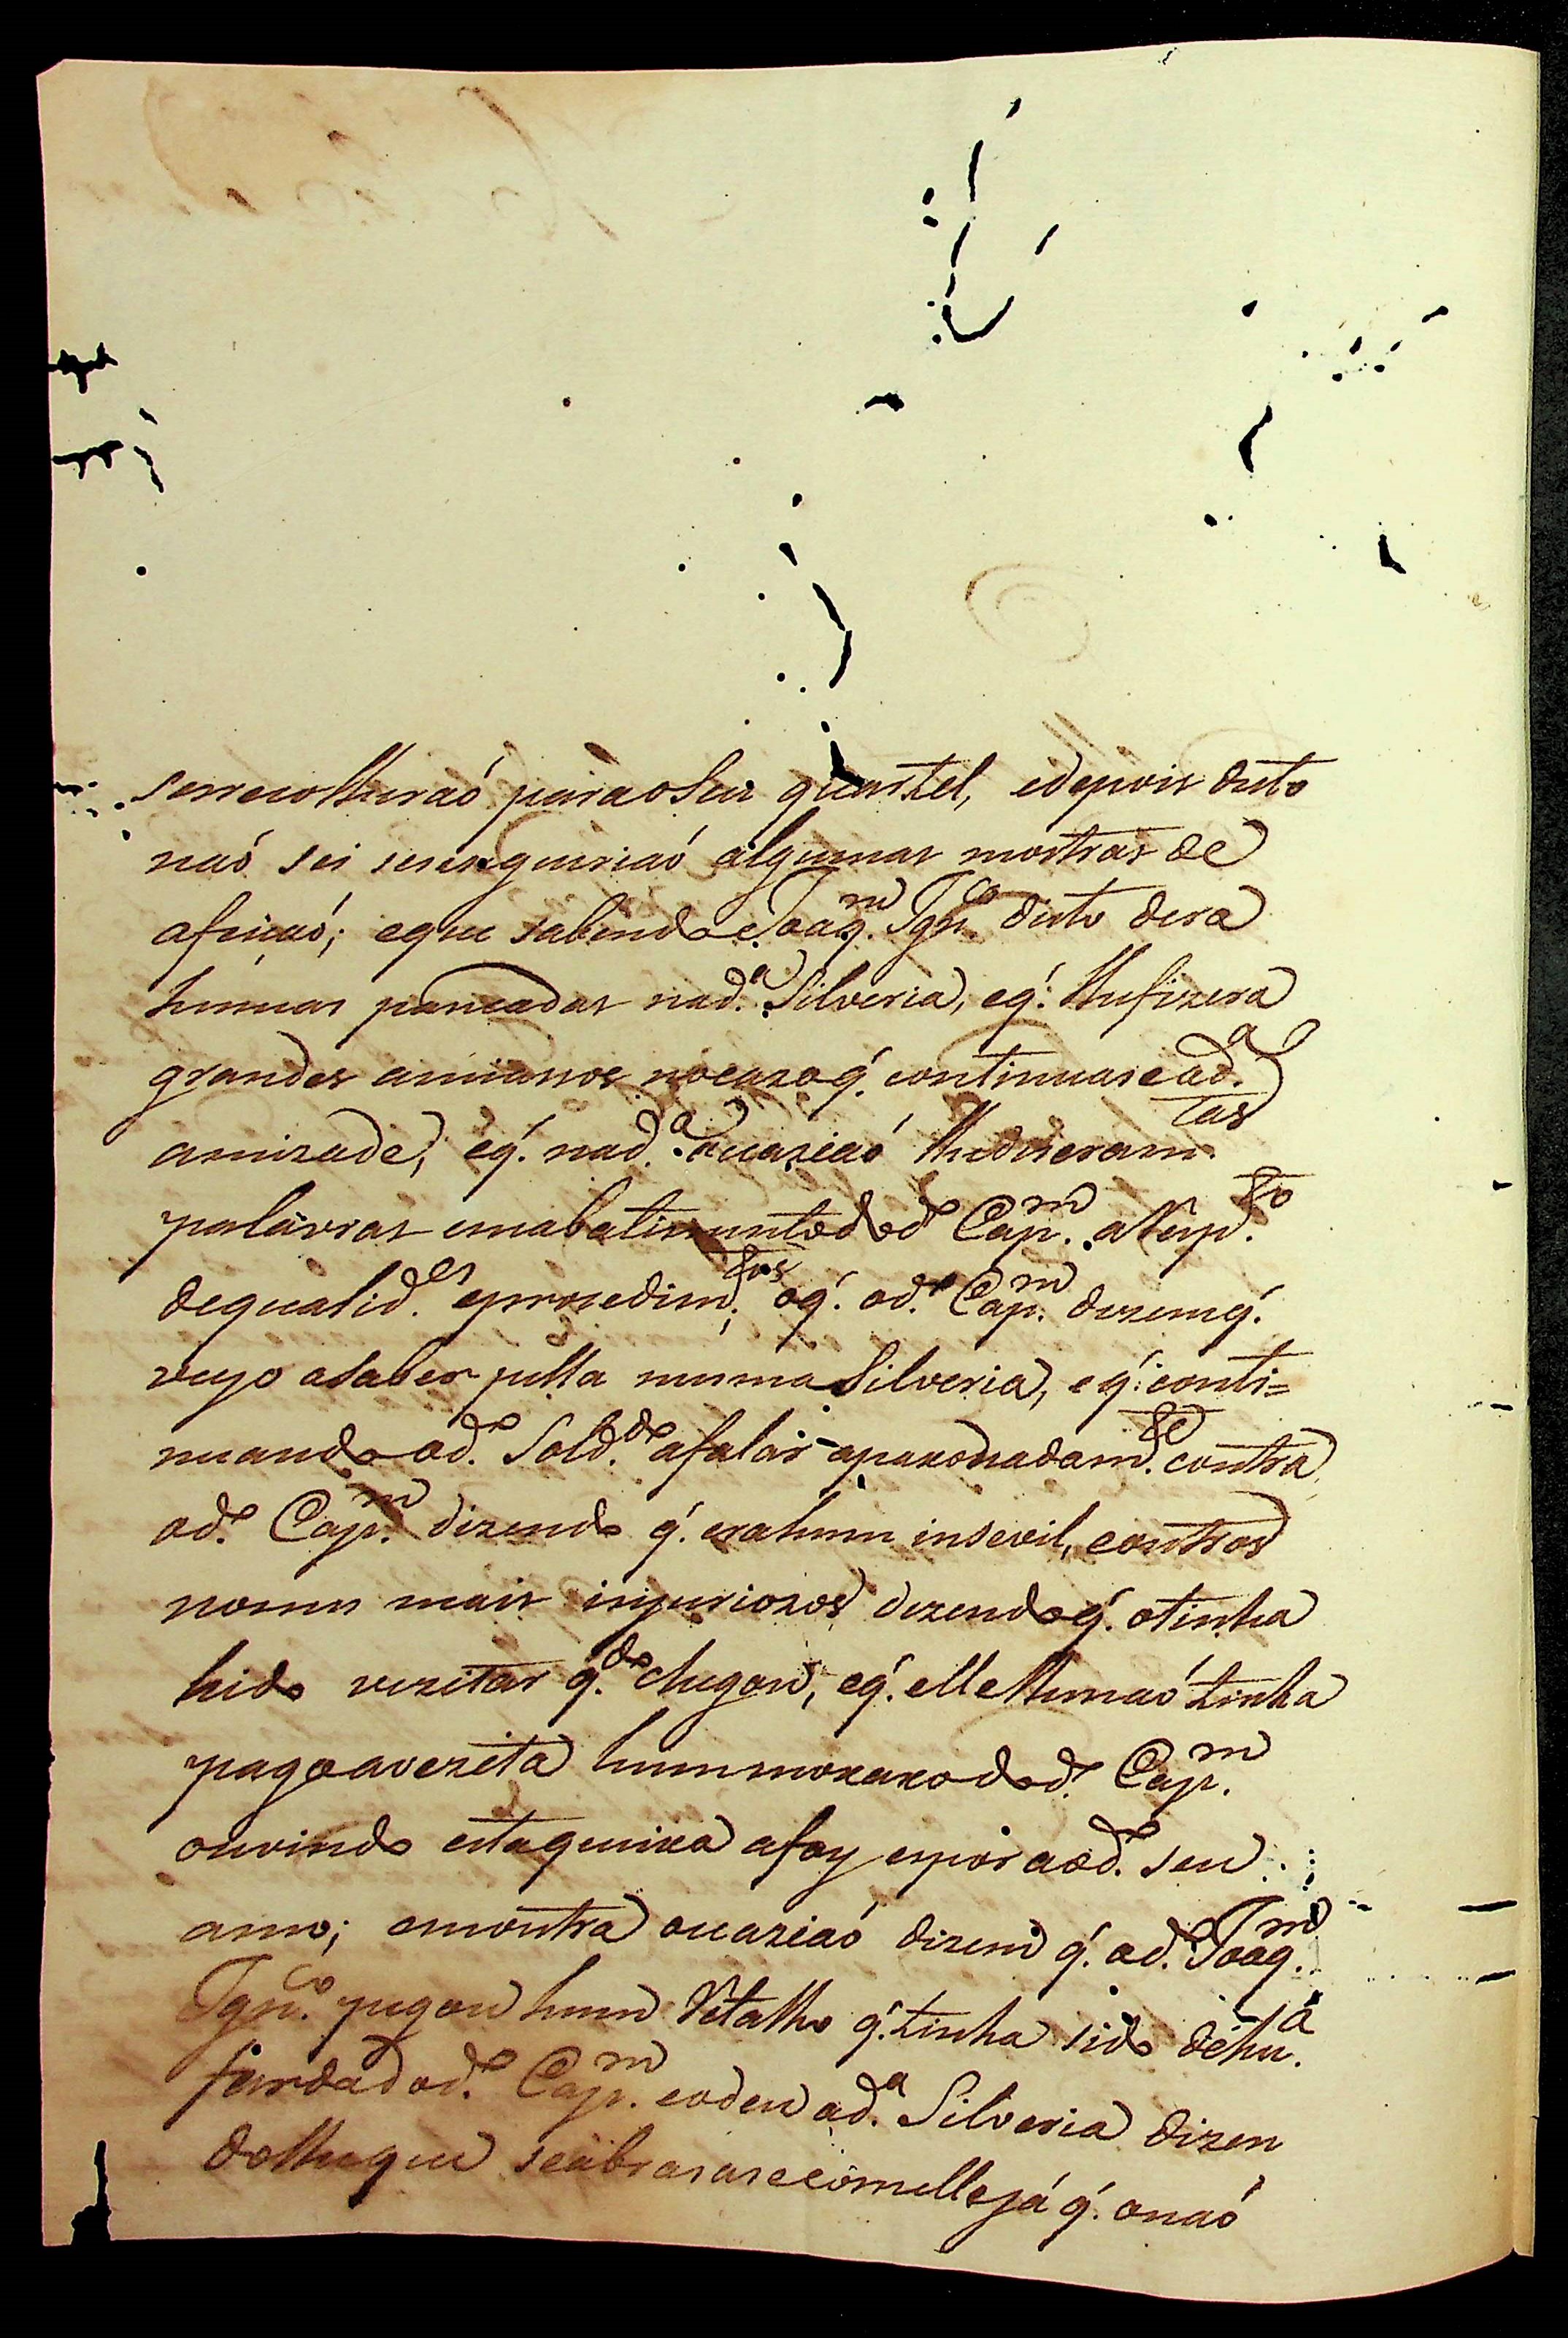 serrecolheraó para o seu quartel, e depois disto
naó sei se seseguiriaó algumas mostras de
afeicaó; eque sabendoe Joaq.m Ign.co disto dera
humas pancadas nad.a Silveria, eq̃. lhefizera
grandes amiasos nocazoq̃. continuase ad.a
amizade, eq̃. nad.a ocaziaó lhedisera m.tas
palavras emabatimentodod.o Cap.m aResp.to
dequalid.es eprosedim.tos, oq̃. od.o Cap.m dizemq̃.
veyo asaber pella mesma Silveria, eq̃. conti=
nuando od.o Sold.do afalar apaxonadam.te contra
od.o Cap.m dizendo q̃. erahum insevil, eoutros
nomes mais injuriozos dizendoq̃. otinha
hido vezitar q.do chegou, eq̃. elle lhenaó tinha
pagoavezita hummoxaxodod.o Cap.m
ouvindo estaqueixa afoy expor aod.o seu
amo; emoutra ocaziaó dizem q̃. od.o Joaq.m
Ign.co pegou hum Retalho q̃. tinha sido dehu.a
fardadod.o Cap.m eodeu ad.a Silveria dizen
dolheque seabrasasecomelle já q̃. onaó